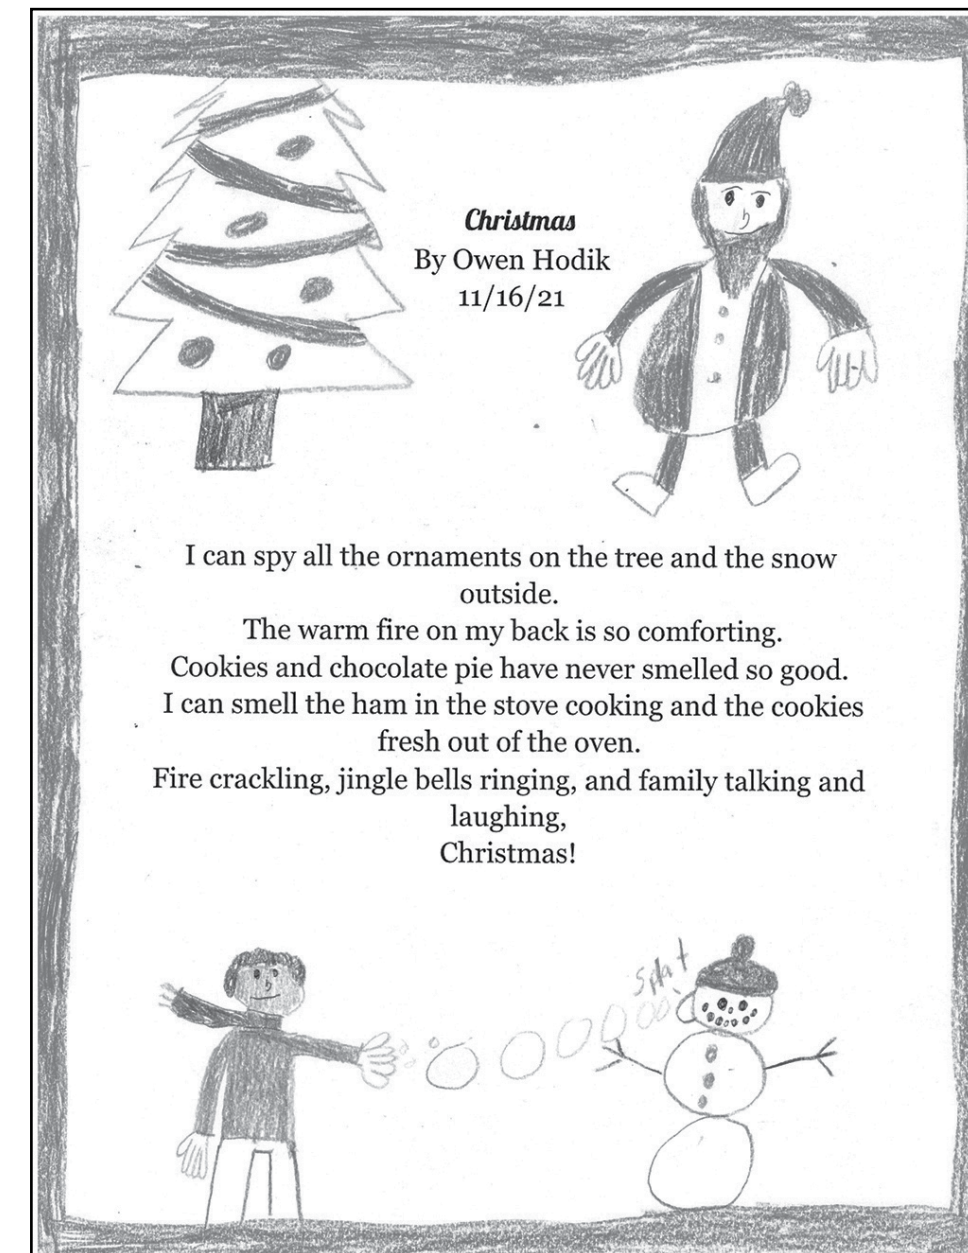 Christmas
By Owen Hodik
11/16/21
I can spy all the ornaments on the tree and the snow
outside.
The warm fire on my back is so comforting.
Cookies and chocolate pie have never smelled so good.
I can smell the ham in the stove cooking and the cookies
fresh out of the oven.
Fire crackling, jingle bells ringing, and family talking and
laughing,
Christmas!
Splat